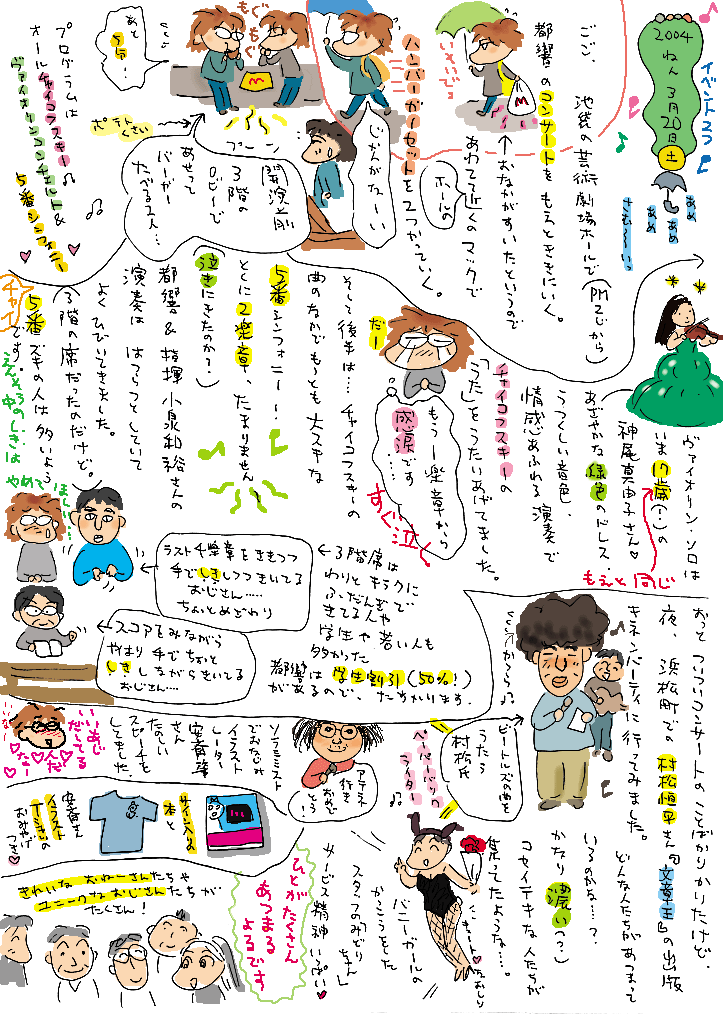 2004
ねん
3月
20日
土
イベント2つ
あめ
あめ
あめ
さむ〜いっ
ごご、池袋の芸術劇場ホールで(PM2じから)
都響のコンサートをもえとききにいく。
↑おなかがすいたというので
あわてて近くのマックで
ハンバーガーセットを2つかっていく。
いそいでる
ホールの
じかんがなーい
開演前
3階の
ロビーで
あせって
バーガー
たべる2人…
もぐもぐ
プーン
ポテト
くさい
あと
5分!
プログラムは
オールチャイコフスキー♫
ヴァイオリンコンチェルト&
5番シンフォニー
ヴァイオリン・ソロは
いま17歳(!)の
もえと同じ
神尾真由子さん♡
あざやかな緑色のドレス.
うつくしい音色、
情感あふれる演奏で
チャイコフスキーの
「うた」をうたいあげてました。
もう一楽章から
感涙です
……
すぐ泣く
だー
そして後半は…チャイコフスキーの
曲のなかでもっとも大スキな
5番シンフォニー!
とくに2楽章、たまりません
(泣きにきたのか?)
都響&指揮小泉和裕さんの
演奏は はつらつとしていて
よくひびいてきました。
(3階の席だったのだけど。
5番ズキの人は多いよう
です。
チャイ
えんそう中のしきは
やめてほしい…
ラスト4楽章をききつつ
手でしきしつつきいてる
おじさん……
ちょっとめざわり
スコアをみながら
やはり手でちょっと
しきしながらきいてる
おじさん…
←3階席は
わりとキラクに
ふだんぎで
きてる人や
学生や若い人も
多かった
都響は学生割引(50%!)
があるので、たすかります.
おっとついついコンサートのことばかりかたけど.
夜、浜松町での村松恒平さん『文章王』の出版
きネンパーティに行ってみました。
どんな人たちがあつまって
いるのかな…?
かなり濃い(?)
コセイテキな人たちが
集ってたような…。
ビートルズの曲を
うたう
村松氏
ペーパーバック
ライター
♫
アテネ
行き
おめで
とう!
ソラミミスト
でおなじみ
イラスト
レーター、
安斎肇
さん
たのしい
スピーチを
してました.
いいあじ
だしてる
安斎さん
イラスト
Tシャツの
おみやげ
つき♡
サイン入りの
本と
きれいなおねーさんたちや
ユニークなおじさんたちが
たくさん!
ひとがたくさん
あつまる
よるです
バニーガールの
かっこうをした
スタッフのみどりちゃん
サービス精神いっぱい♡